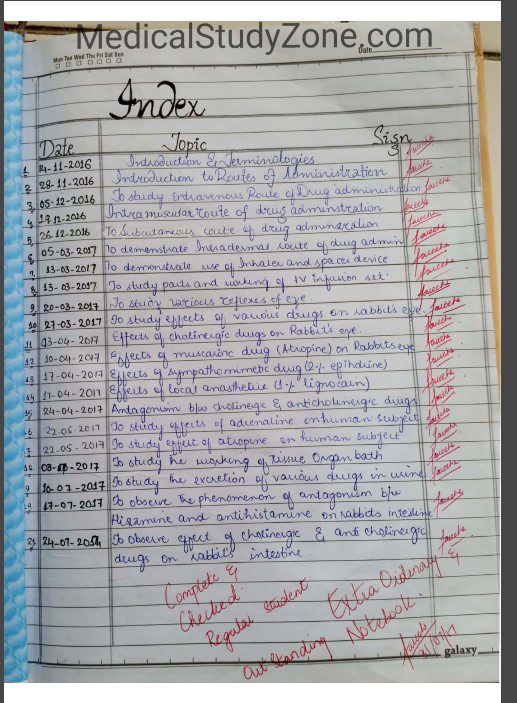 MedicalStudyZone.com
Mon Tue Wed Thu Fri Sat Sun
Date
Index
Date Topic Sign
1. 14-11-2016 Introduction & Terminologies
2. 28-11-2016 Introduction to Routes of Administration
3. 05-12-2016 To study intravenous Route of Drug administration
4. 19-12-2016 Intramuscular route of drug adminstration
5. 26-12-2016 To Subcutaneous route of drug adminstration
6. 05-03-2017 To demonstrate Intradermal route of drug admin
7. 13-03-2017 To demonstrate use of Inhaler and spacer device
8. 13-03-2017 To study parts and working of IV infusion set.
9. 20-03-2017 To study various reflexes of eye
10. 27-03-2017 To study effects of various drugs on rabbit's eye
11 03-04-2017 Effects of cholinergic drugs on Rabbit's eye.
12 10-04-2017 Effects of muscarinc drug (Atropine) on Rabbits eye
13 17-04-2017 Effects of sympathomimetic drug (2% ephidrine)
14 17-04-2017 Effects of local anasthetic (1% lignocain)
15 24-04-2017 Antagonism b/w cholinergic & anticholinergic drugs
16 22-05-2017 To study effects of adrenaline on human subject
17 22-05-2017 To study effect of atropine on human subject
18 03-07-2017 To study the working of tissue Organ bath
19 10-07-2017 To study the excretion of various drugs in urine
20 17-07-2017 To observe the phenomenon of antagonism b/w
Histamine and antihistamine on rabbits intestine
21 24-07-2017 To observe effect of cholinergic & anti cholinergic
drugs on rabbit's intestine.
Complete &
Checked.
Regular Student
Extra Ordinary &
Out Standing Notebook.
31/07/17
galaxy